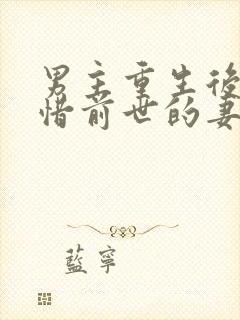 男主重生後
惜前世的妻
藍寧